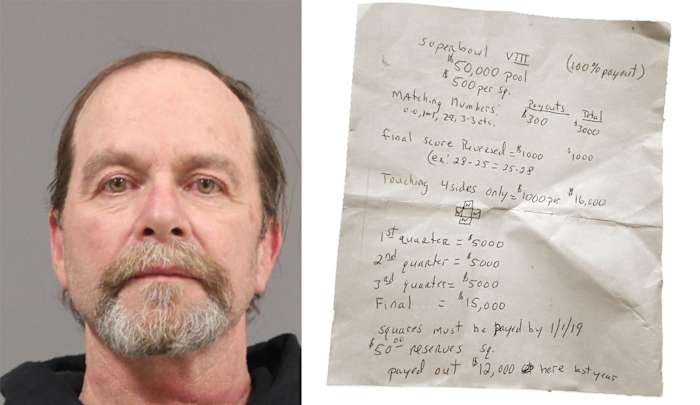 Superbowl VIII (100% payout)
$50,000 pool
$500 per sq.
Matching Numbers: Payouts Total
0-0, 1-1, 2-2, 3-3 etc. $300 $3000
final score Reversed = $1000 $1000
(ex: 28-25 = 25-28
Touching 4 sides only = $1000 per $16,000
1st quarter = $5000
2nd quarter = $5000
3rd quarter = $5000
Final = $15,000
squares must be payed by 1/1/19
$50.00 reserves sq.
payed out $12,000 here last year